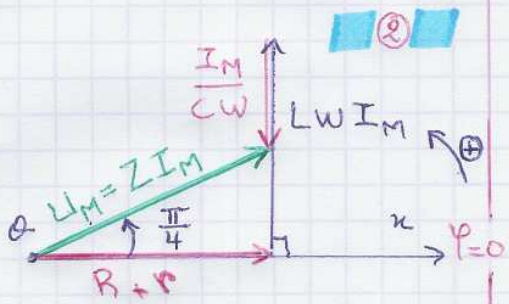 ②
I_M
CW
LWI_M
⊕
U_M = Z I_M
π
4
O
x
φ=0
R + r